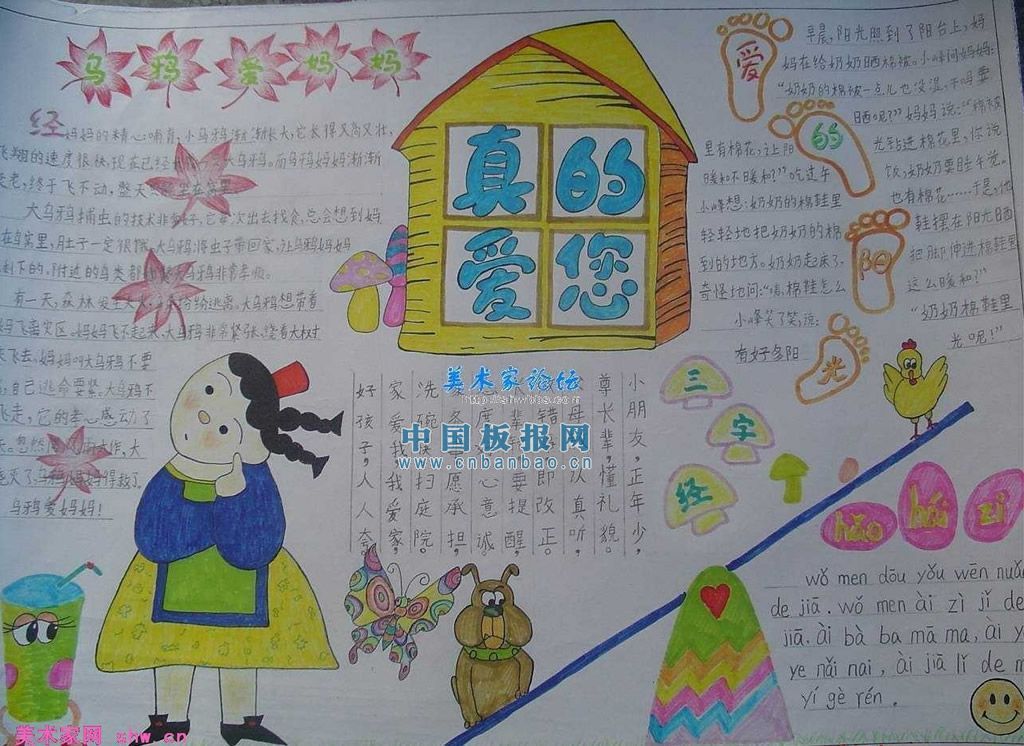 乌鸦爱妈妈
经妈妈的精心哺育,小乌鸦渐渐长大,它长得又高又壮,
飞翔的速度很快,现在已经 大乌鸦。而乌鸦妈妈渐渐
变老,终于飞不动,整天 在窝里
大乌鸦捕虫的技术非常好,它每次出去找食,总会想到妈
在鸟窝里,肚子一定很饿,大乌鸦将虫子带回家,让乌鸦妈妈
剩下的,附近的鸟类都 大乌鸦非常孝顺。
有一天,森林发生大火, 纷纷逃离,大乌鸦想带着
妈飞离灾区,妈妈飞不起来,大乌鸦非常紧张,绕着大树
飞去,妈妈叫大乌鸦不要
,自己逃命要紧,大乌鸦不
飞走,它的孝心感动了
天。忽然 雨大作,大
灭了,乌鸦妈妈得救了。
乌鸦爱妈妈!
真的
爱您
爱的阳光
早晨,阳光照到了阳台上,妈
妈在给奶奶晒棉被。小峰问妈妈:
“奶奶的棉被一点儿也没湿,干吗要
晒呢?”妈妈说:“棉被
里有棉花,让阳光钻进棉花里,你说
暖和不暖和?”吃过午饭,奶奶要睡午觉。
小峰想:奶奶的棉鞋里也有棉花……于是,他
轻轻地把奶奶的棉鞋摆在阳光晒
到的地方。奶奶起床了,把脚伸进棉鞋里
奇怪地问:“咦,棉鞋怎么这么暖和?”
小峰笑了笑,说:“奶奶棉鞋里
有好多阳光呢!”
三字经
小朋友,正年少,
尊长辈,懂礼貌。
认真听,
错 即改正。
辈 要提醒,
心意诚。
愿承担,
洗碗 扫庭院。
家爱我,我爱家,
好孩子,人人夸。
美术家论坛
http://shwbbs.com
中国板报网
www.cnbanbao.cn
hǎo hái zi
wǒ men dōu yǒu wēn nuǎ
de jiā. wǒ men ài zì jǐ de
jiā. ài bà ba mā ma, ài y
ye nǎi nai, ài jiā lǐ de m
yí gè rén.
美术家网 shw.cn